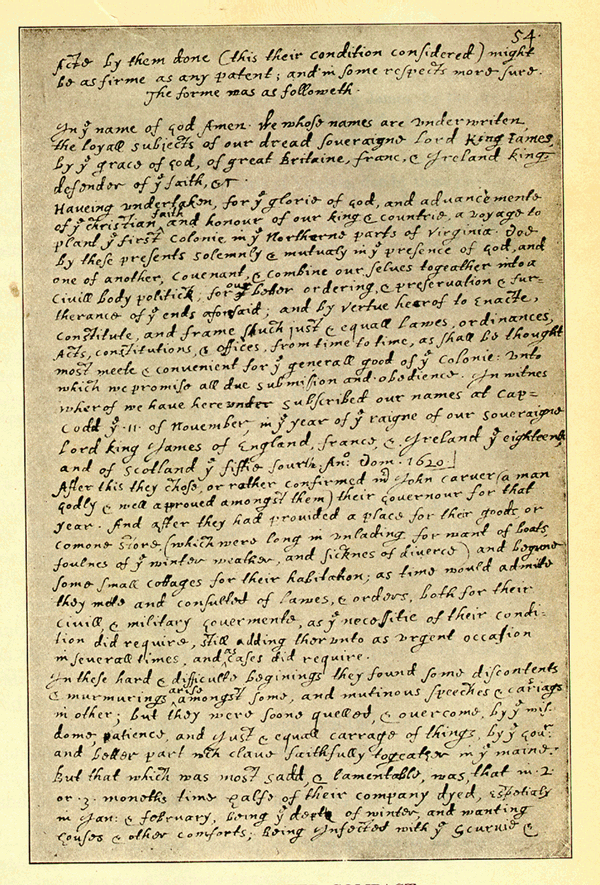 54.
Acts by them done (this their condition considered) might
be as firme as any patent; and in some respects more sure.
The forme was as followeth.
In yͤ name of god Amen. We whose names are vnderwriten,
the loyall subjects of our dread soveraigne Lord King James,
by yͤ grace of god, of great Britaine, franc, & Ireland king,
defender of yͤ faith, &c.
Haveing vndertaken, for yͤ glorie of god, and advancemente
of yͤ christian faith and honour of our king & countrie, a voyage to
plant yͤ first Colonie in yͤ Northerne parts of Virginia. Doe
by these presents solemnly & mutualy in yͤ presence of god, and
one of another, covenant, & combine our selves togeather into a
Civill body politick; for our better ordering, & preservation & fur=
therance of yͤ ends aforsaid; and by vertue hearof to Enacte,
constitute, and frame such just & equall Lawes, ordinances,
Acts, constitutions, & offices, from time to time, as shall be thought
most meete & convenient for yͤ generall good of yͤ Colonie: vnto
which we promise all due submission and obedience. In witnes
wherof we have here vnder subscribed our names at Cap=
Codd yͤ .11. of November, in yͤ year of yͤ raigne of our soveraigne
Lord king James of England, france, & Ireland yͤ eighteenth
and of Scotland yͤ fiftie fourth. An͒: Dom. 1620.|
After this they chose, or rather confirmed mʳ John Carver (a man
godly & well aproved amongst them) their governour for that
year. And after they had provided a place for their goods or
comone store, (which were long in vnlading for want of boats,
foulnes of yͤ winter weather, and sicknes of diverce) and begune
some small cottages for their habitation; as time would admitte
they mete and consulted of Lawes, & orders, both for their
civill, & military govermente, as yͤ necessitie of their condi=
tion did require, still adding therunto as vrgent occasion
in severall times, and as cases did require.
In these hard & difficulte beginings they found some discontents
& murmurings arise amongst some, and mutinous speeches & cariags
in other; but they were soone quelled, & overcome, by yͤ wis=
dome, patience, and just & equall carrage of things, by yͤ Govʳ
and better part wᶜʰ clave faithfully togeather in yͤ maine.
But that which was most sadd, & lamentable, was, that in .2.
or .3. moneths time halfe of their company dyed, espetialy
in Jan: & february, being yͤ depth of winter, and wanting
houses & other comforts; being Infected with yͤ Scurvie &